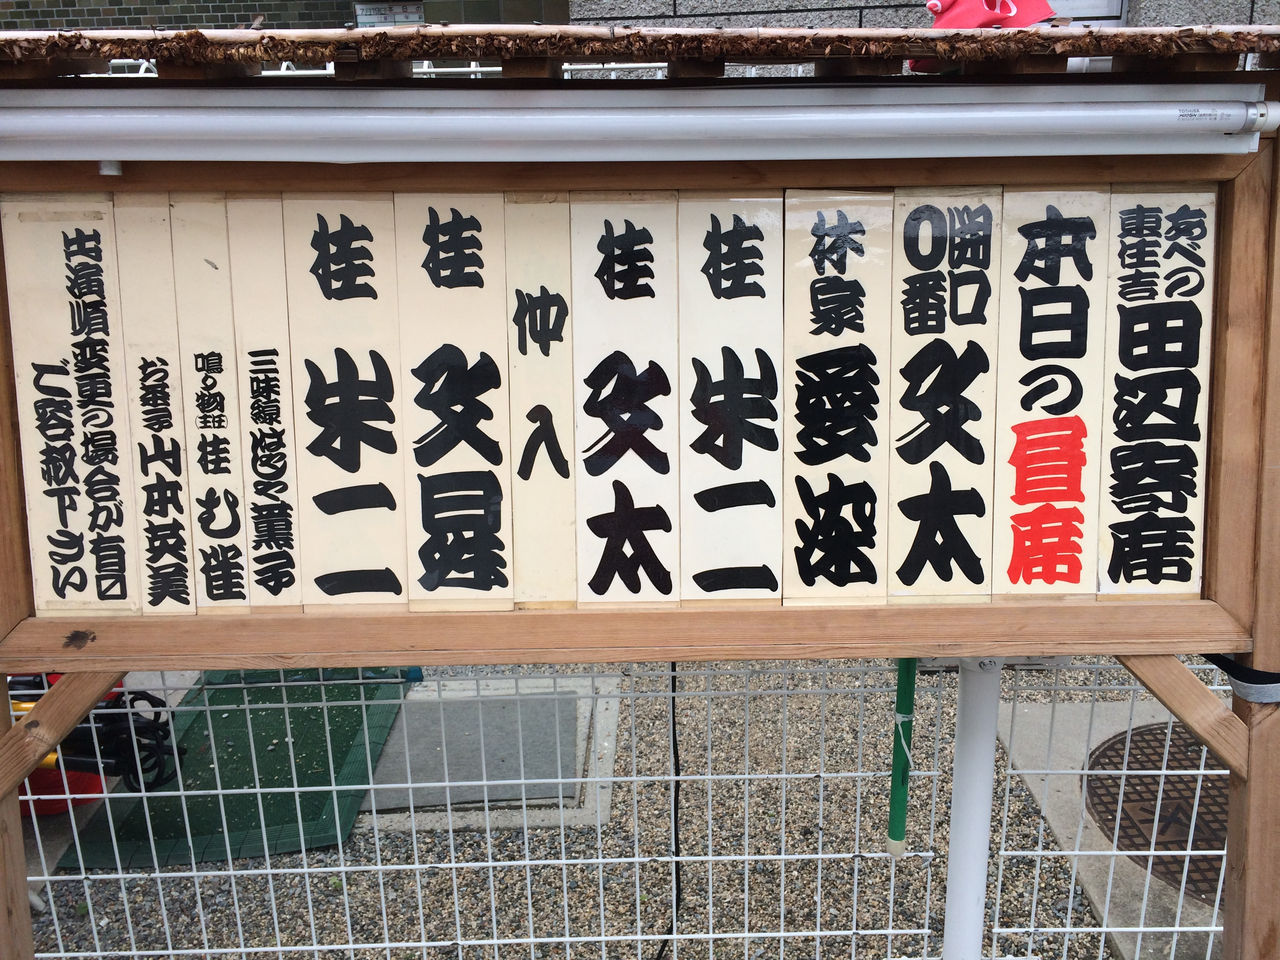 あべの
東住吉 田辺寄席
本日の昼席
開口
0番 炙太
林家 愛染
桂 米二
桂 炙太
仲入
桂 炙昇
桂 米二
三味線 はやしや薫子
鳴り物 桂 む雀
お茶子 山本英美
出演順変更の場合が有ロ
ご容赦下さい
TOSHIBA